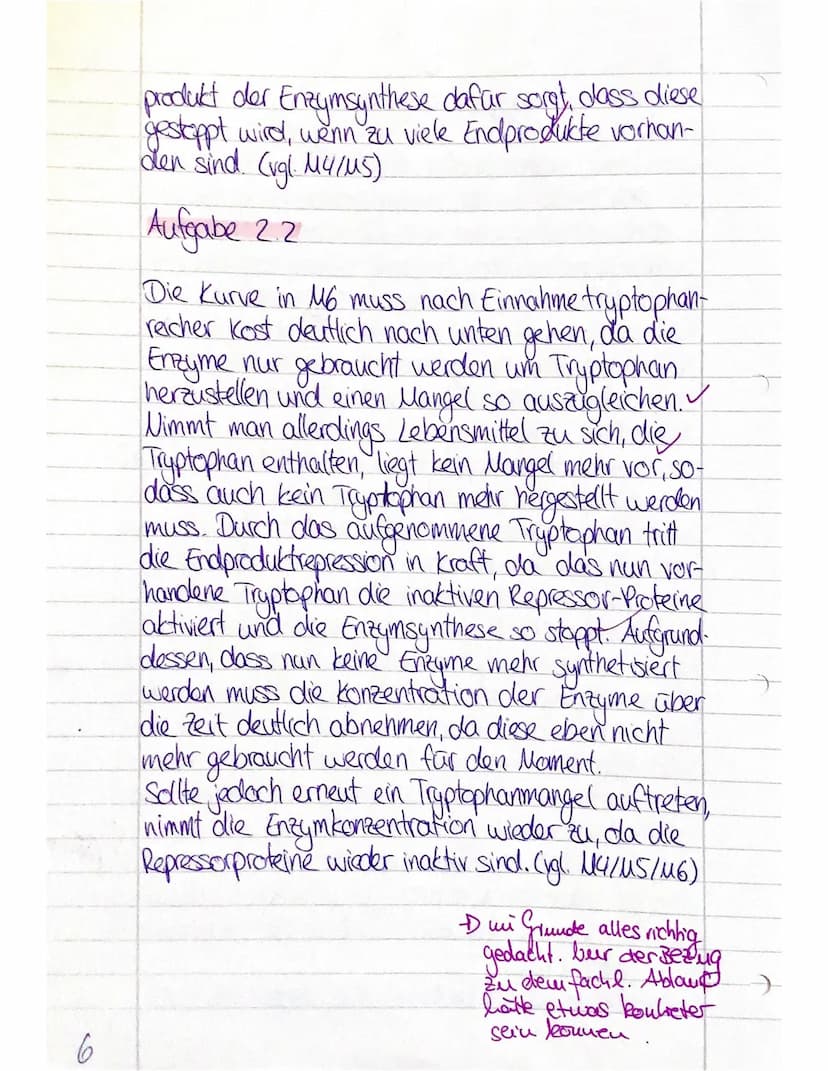 produkt der Enzymsynthese dafür sorgt, dass diese
gestoppt wird, wenn zu viele Endprodukte vorhan-
den sind. (vgl. M4/M5)
Aufgabe 2.2
Die Kurve in M6 muss nach Einnahme tryptophan-
reicher Kost deutlich nach unten gehen, da die
Enzyme nur gebraucht werden um Tryptophan
herzustellen und einen Mangel so auszugleichen.
Nimmt man allerdings Lebensmittel zu sich, die
Tryptophan enthalten, liegt kein Mangel mehr vor, so-
dass auch kein Tryptophan mehr hergestellt werden
muss. Durch das aufgenommene Tryptophan tritt
die Endproduktrepression in Kraft, da das nun vor-
handene Tryptophan die inaktiven Repressor-Proteine
aktiviert und die Enzymsynthese so stoppt. Aufgrund-
dessen, dass nun keine Enzyme mehr synthetisiert
werden muss die Konzentration der Enzyme über
die Zeit deutlich abnehmen, da diese eben nicht
mehr gebraucht werden für den Moment.
Sollte jedoch erneut ein Tryptophanmangel auftreten,
nimmt die Enzymkonzentration wieder zu, da die
Repressorproteine wieder inaktiv sind. (vgl. M4/M5/M6)
im Grunde alles richtig
gedacht. nur der Bezug
zu dem fachl. Ablauf
hätte etwas konkreter
sein können.
6